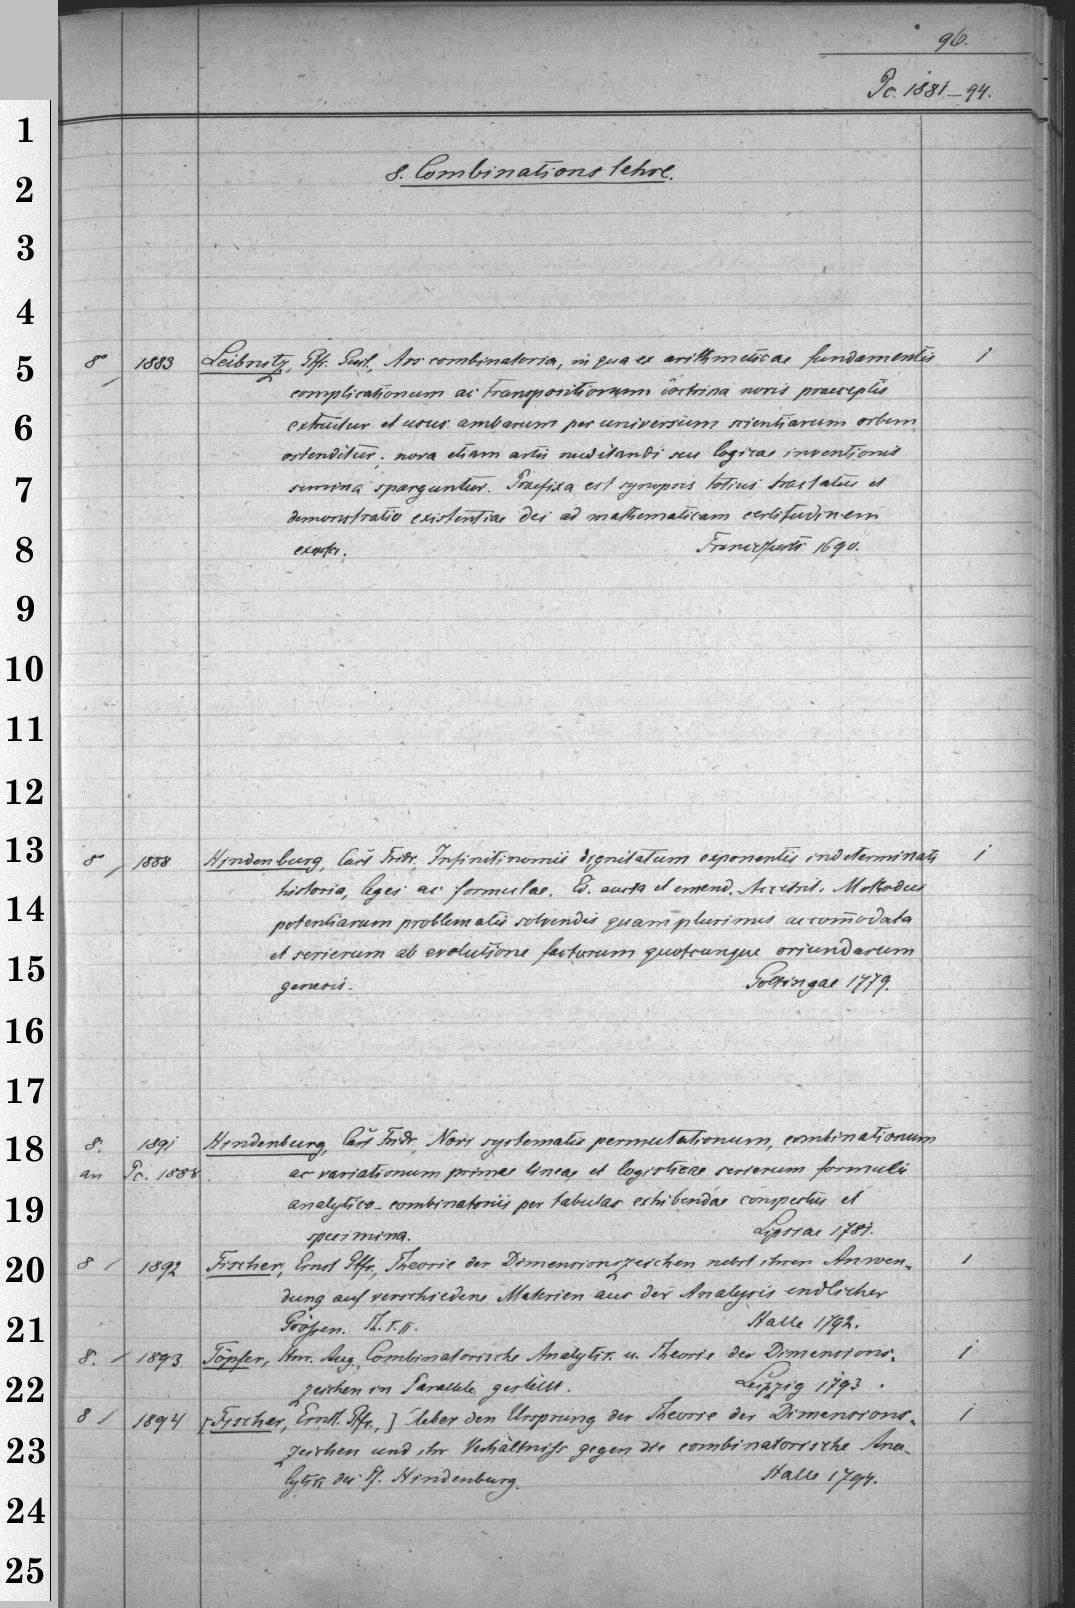 96.
Pc. 1881–94.
8. Combinationslehre.
8° 1883 Leibnitz, Gfr. Guil., Ars combinatoria, in qua ex arithmeticae fundamentis 1
complicationum ac transpositionum doctrina novis praeceptis
extruitur et usus ambarum per universum scientiarum orbem
ostenditur; nova etiam artis meditandi seu logicae inventionis
semina sparguntur. Praefixa est synopsis totius tractatus et
demonstratio existentiae dei ad mathematicam certitudinem
exacta. Francofurti 1690.
8° 1888 Hindenburg, Carl Fridr., Infinitinomii dignitatum exponentis indeterminati 1
historia, leges ac formulae. Ed. aucta et emend. Accessit: Methodus
potentiarum problematis solvendis quam plurimis accom̅odata
et serierum ab evolutione factorum quotcunque oriundarum
genesis. Gottingae 1779.
8. 1891 Hindenburg, Carl Fridr., Novi systematis permutationum, combinationum
an Pc. 1888. ac variationum primae lineae et logisticae serierum formulis
analytico-combinatoriis per tabulas exhibendae conspectus et
specimina. Lipsiae 1781.
8 / 1892 Fischer, Ernst Gfr., Theorie der Dimensionszeichen nebst ihren Anwen- 1
dung auf verschiedene Materien aus der Analysis endlicher
Größen. Th. I. II. Halle 1792.
8. / 1893 Töpfer, Hnr. Aug., Combinatorische Analytik u. Theorie der Dimensions- 1
zeichen in Parallele gestellt. Leipzig 1793.
8 / 1894 [Fischer, Ernst. Gfr.,] Ueber den Ursprung der Theorie der Dimensions- 1
zeichen und ihr Verhältniss gegen die combinatorische Ana-
lytik des H. Hindenburg. Halle 1794.
1
2
3
4
5
6
7
8
9
10
11
12
13
14
15
16
17
18
19
20
21
22
23
24
25